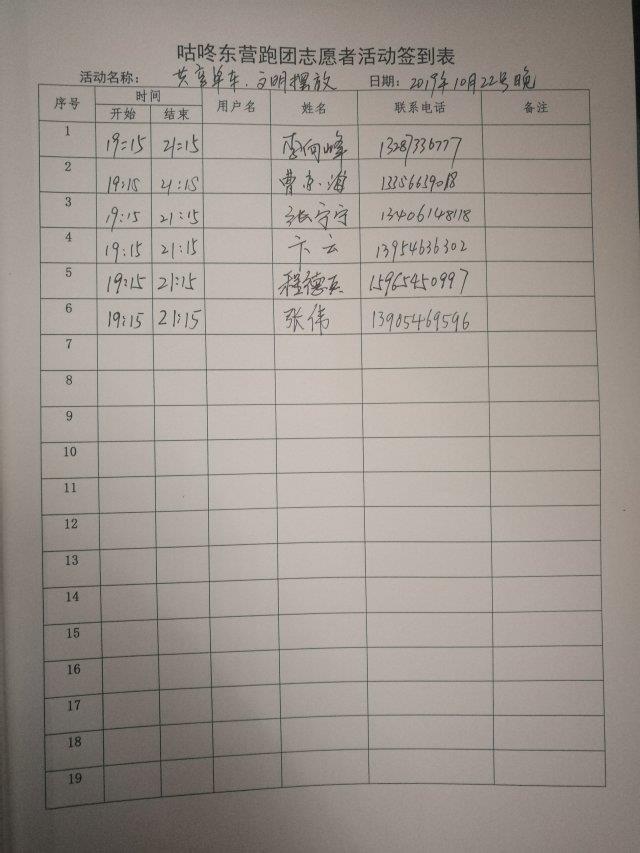 咕咚东营跑团志愿者活动签到表
活动名称： 共享单车.文明摆放 日期：2019年10月22号晚
序号 时间 用户名 姓名 联系电话 备注
开始 结束
1 19:15 21:15 李向峰 13287336777
2 19:15 21:15 曹京海 13356639018
3 19:15 21:15 张宁宁 13406148118
4 19:15 21:15 卞云 13954636302
5 19:15 21:15 程德兵 15965450997
6 19:15 21:15 张伟 13905469596
7
8
9
10
11
12
13
14
15
16
17
18
19